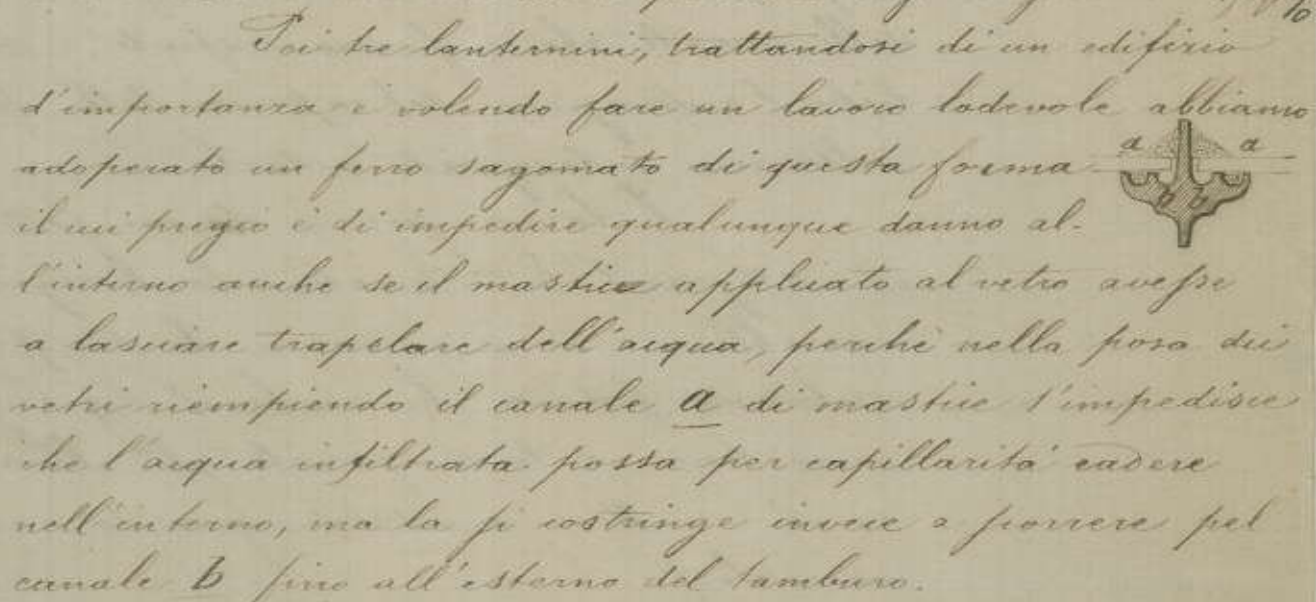 Pei tre lanternini, trattandosi di un edifizio
d'importanza e volendo fare un lavoro lodevole abbiamo
adoperato un ferro sagomato di questa forma a a
b b
il cui pregio è di impedire qualunque danno al-
l'interno anche se il mastice applicato al vetro avesse
a lasciare trapelare dell'acqua, perchè nella posa dei
vetri riempiendo il canale a di mastice s'impedisce
che l'acqua infiltrata possa per capillarità cadere
nell'interno, ma la si costringe invece a scorrere pel
canale b fino all'esterno del tamburo.